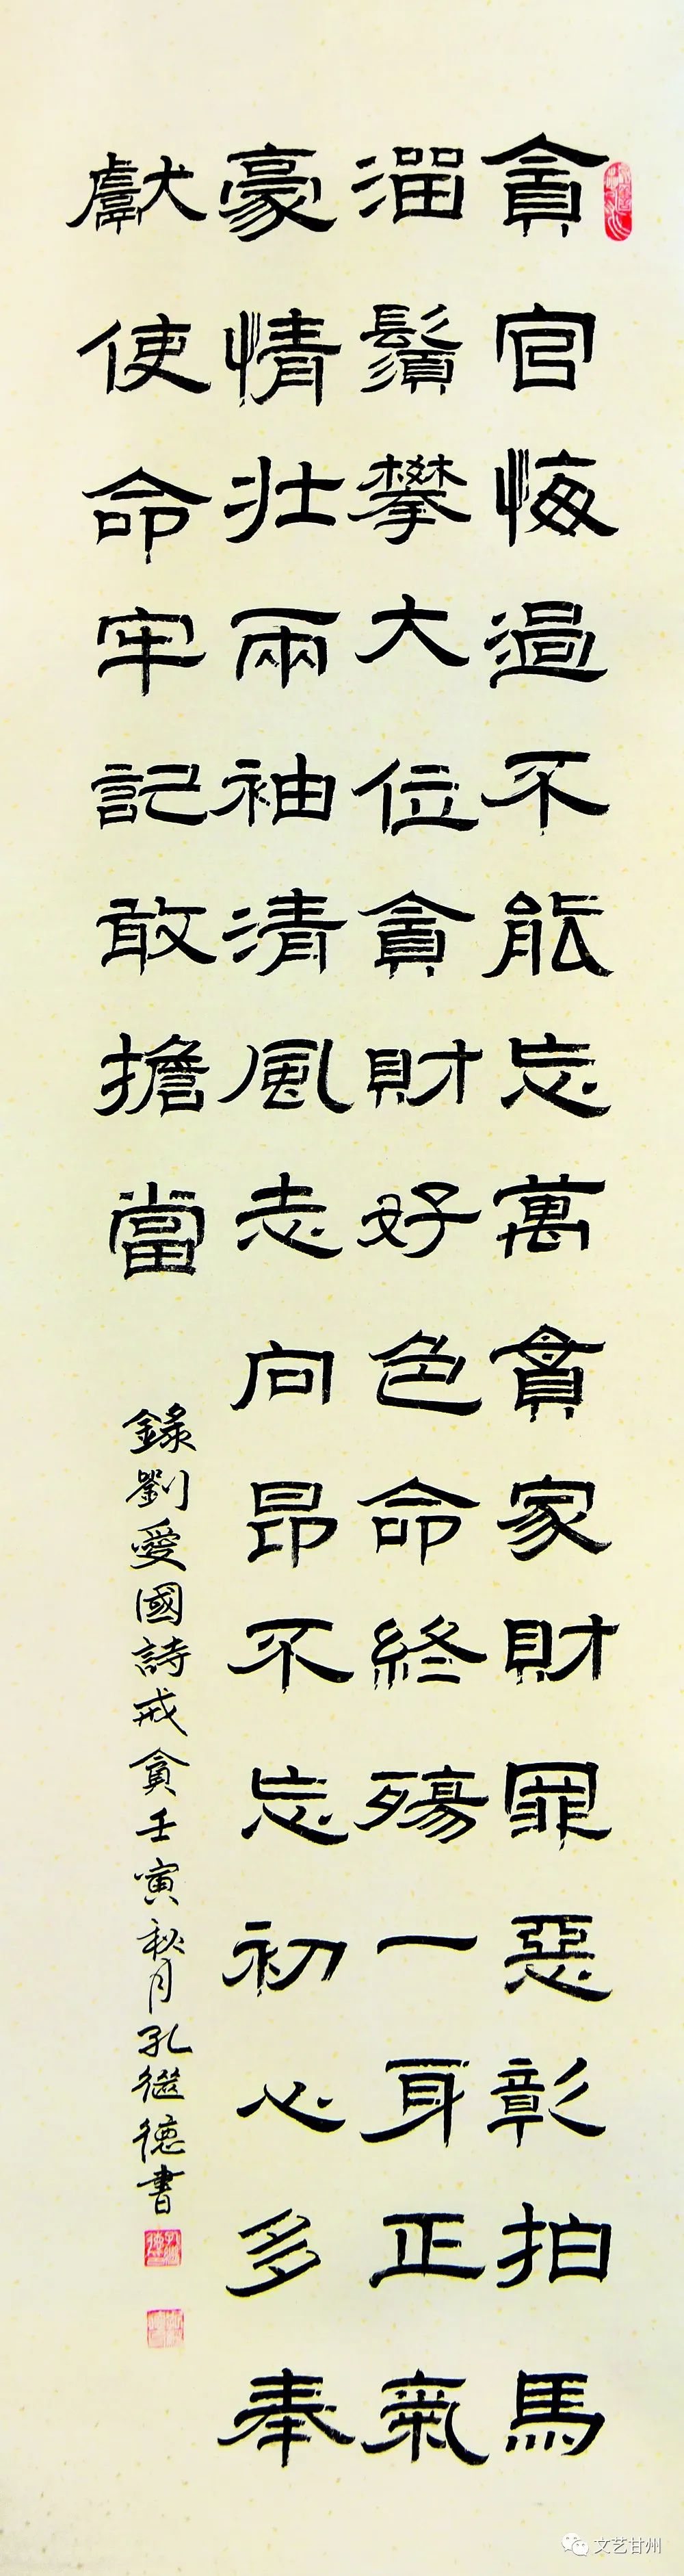 貪官悔過不能忘萬貫家財罪惡彰拍馬
溜鬚攀大位貪財好色命終殤一身正氣
豪情壯兩袖清風志向昂不忘初心多奉
獻使命牢記敢擔當
錄劉愛國詩戒貪壬寅秋月孔繼德書
文艺甘州